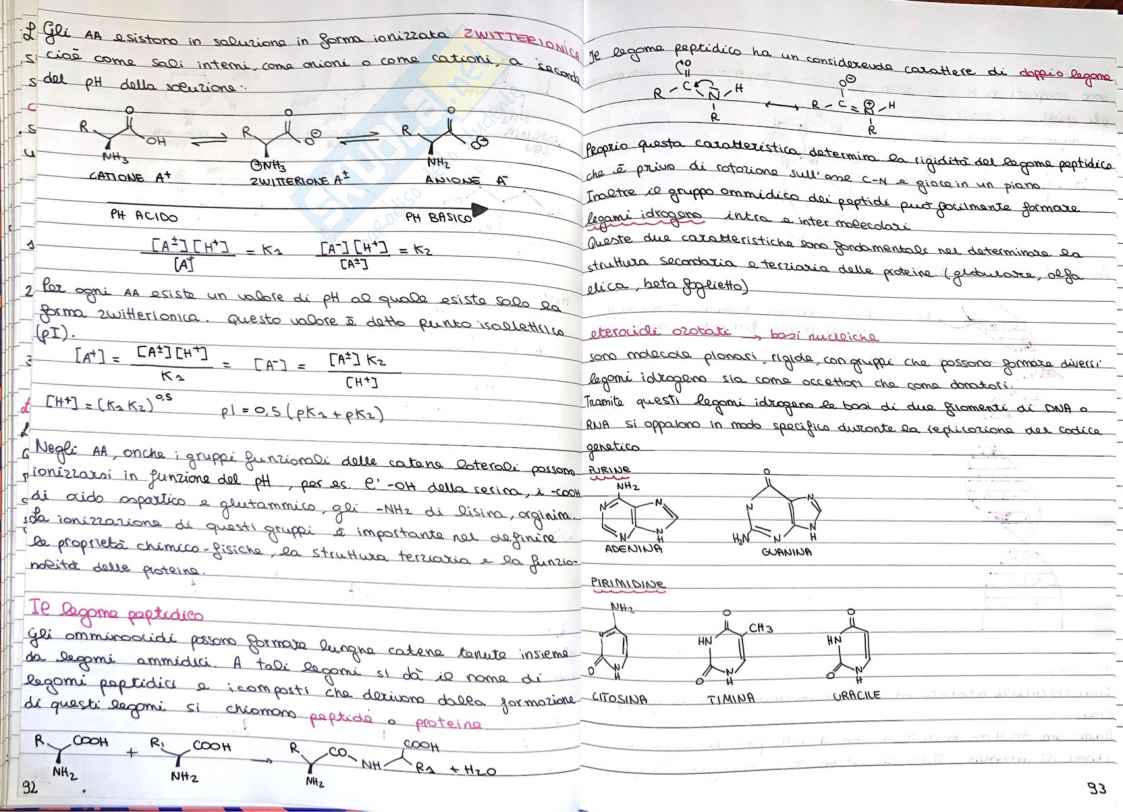 Gli AA esistono in soluzione in forma ionizzata ZWITTERIONICA
cioè come sali interni, come anioni o come cationi, a seconda
del pH della soluzione:
R OH NH3
R O O⊖ ⊕NH3
R O O⊖ NH2
CATIONE A+ ZWITTERIONE A± ANIONE A-
PH ACIDO PH BASICO
[A±][H+] / [A+] = K1 [A-][H+] / [A±] = K2
Per ogni AA esiste un valore di pH al quale esiste solo la
forma zwitterionica. Questo valore è detto punto isoelettrico
(pI).
[A+] = [A±][H+] / K1 = [A-] = [A±] K2 / [H+]
[H+] = (K1 K2)^0,5 pI = 0,5 (pK1 + pK2)
Negli AA, anche i gruppi funzionali delle catene laterali possono
ionizzarsi in funzione del pH, per es. l'-OH della serina, i -COOH
di acido aspartico e glutammico, gli -NH2 di lisina, arginina.
La ionizzazione di questi gruppi è importante nel definire
le proprietà chimico-fisiche, la struttura terziaria e la funzio-
nalità delle proteine.
Il legame peptidico
Gli amminoacidi possono formare lunghe catene tenute insieme
da legami ammidici. A tali legami si dà il nome di
legami peptidici e i composti che derivano dalla formazione
di questi legami si chiamano peptidi o proteine
R COOH NH2 + R1 COOH NH2 → R CO NH COOH R1 NH2 + H2O
92
Il legame peptidico ha un considerevole carattere di doppio legame
R - C N - H R O
R - C = N - H R O⊖ ⊕
Proprio questa caratteristica determina la rigidità del legame peptidico
che è privo di rotazione sull'asse C-N e giace in un piano
Inoltre il gruppo ammidico dei peptidi può facilmente formare
legami idrogeno intra e inter molecolari
Queste due caratteristiche sono fondamentali nel determinare la
struttura secondaria e terziaria delle proteine (globulare, alfa
elica, beta foglietto)
eterocicli azotati → basi nucleiche
sono molecole planari, rigide, con gruppi che possono formare diversi
legami idrogeno sia come accettori che come donatori.
Tramite questi legami idrogeno le basi di due filamenti di DNA o
RNA si appaiono in modo specifico durante la replicazione del codice
genetico
PURINE
NH2 N N N N H
O N N N N H H2N
ADENINA GUANINA
PIRIMIDINE
NH2 N O N H
O HN O N H CH3
O HN O N H
CITOSINA TIMINA URACILE
93